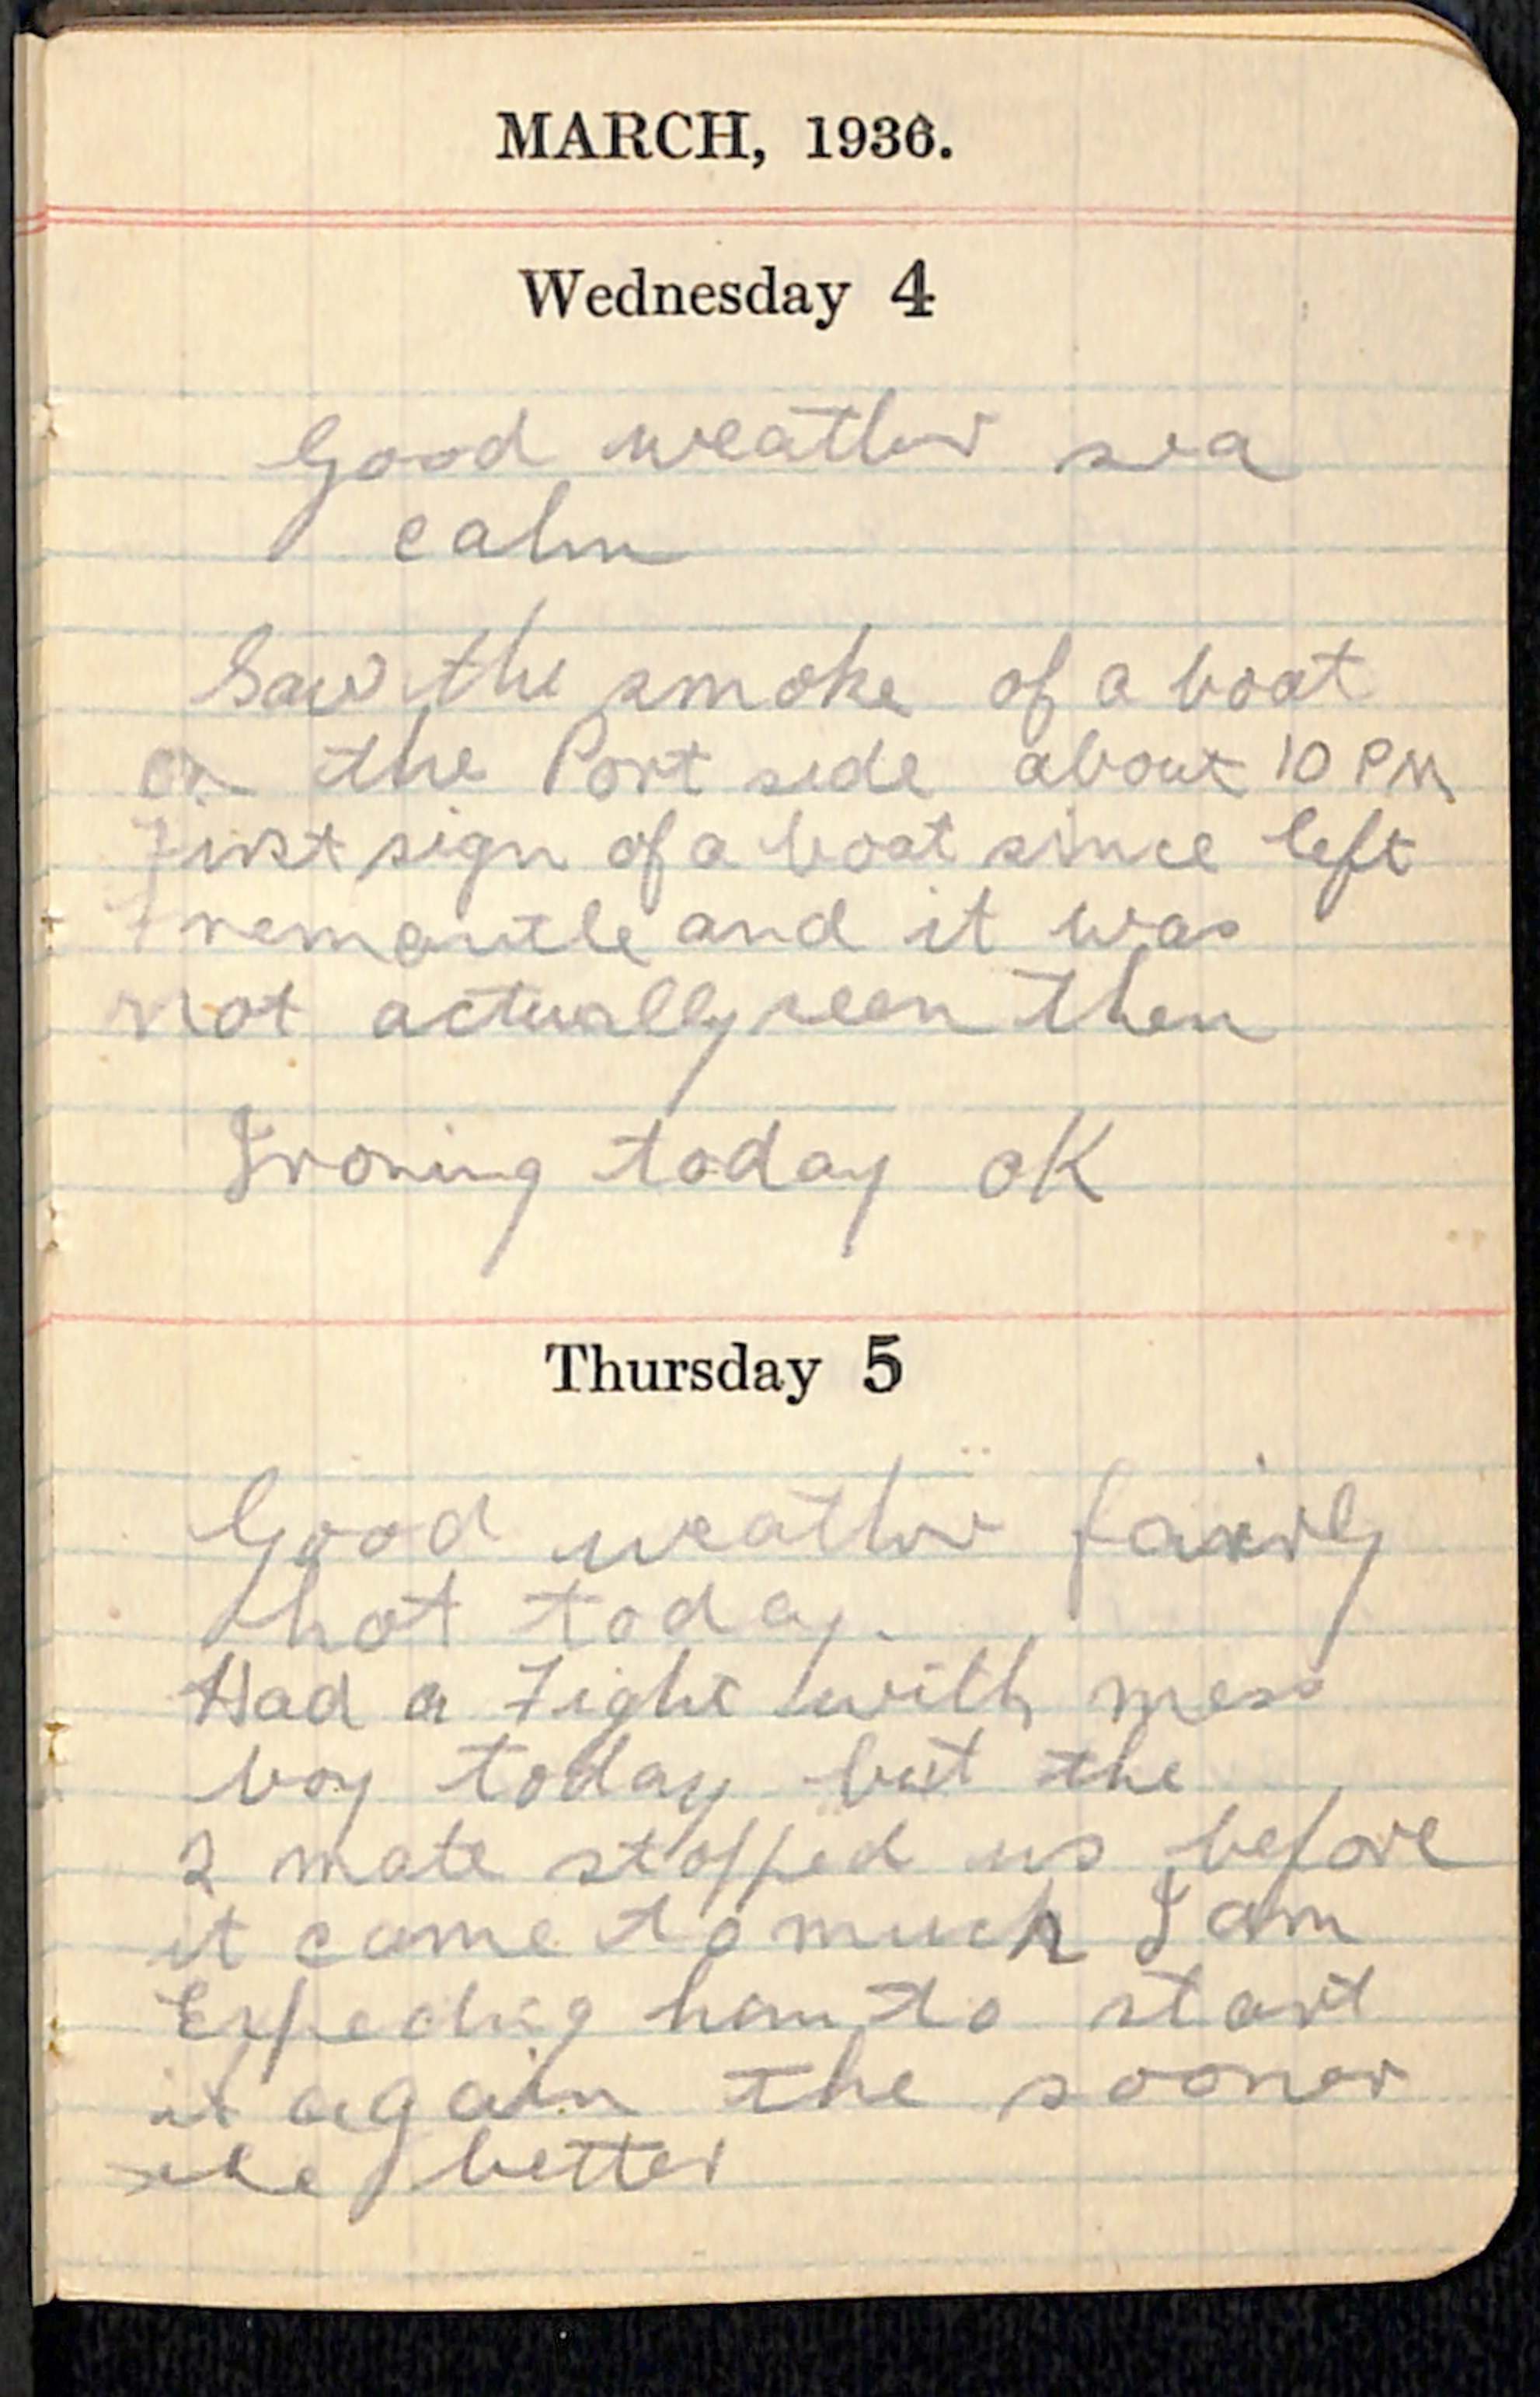 MARCH, 1936.
Wednesday 4
Good weather sea
calm
Saw the smoke of a boat
on the Port side about 10 PM
First sign of a boat since left
Fremantle and it was
not actually seen then
Ironing today OK
Thursday 5
Good weather fairly
hot today.
Had a Fight with mess
boy today but the
2 mate stopped us before
it came to much I am
Expecting him to start
it again the sooner
the better